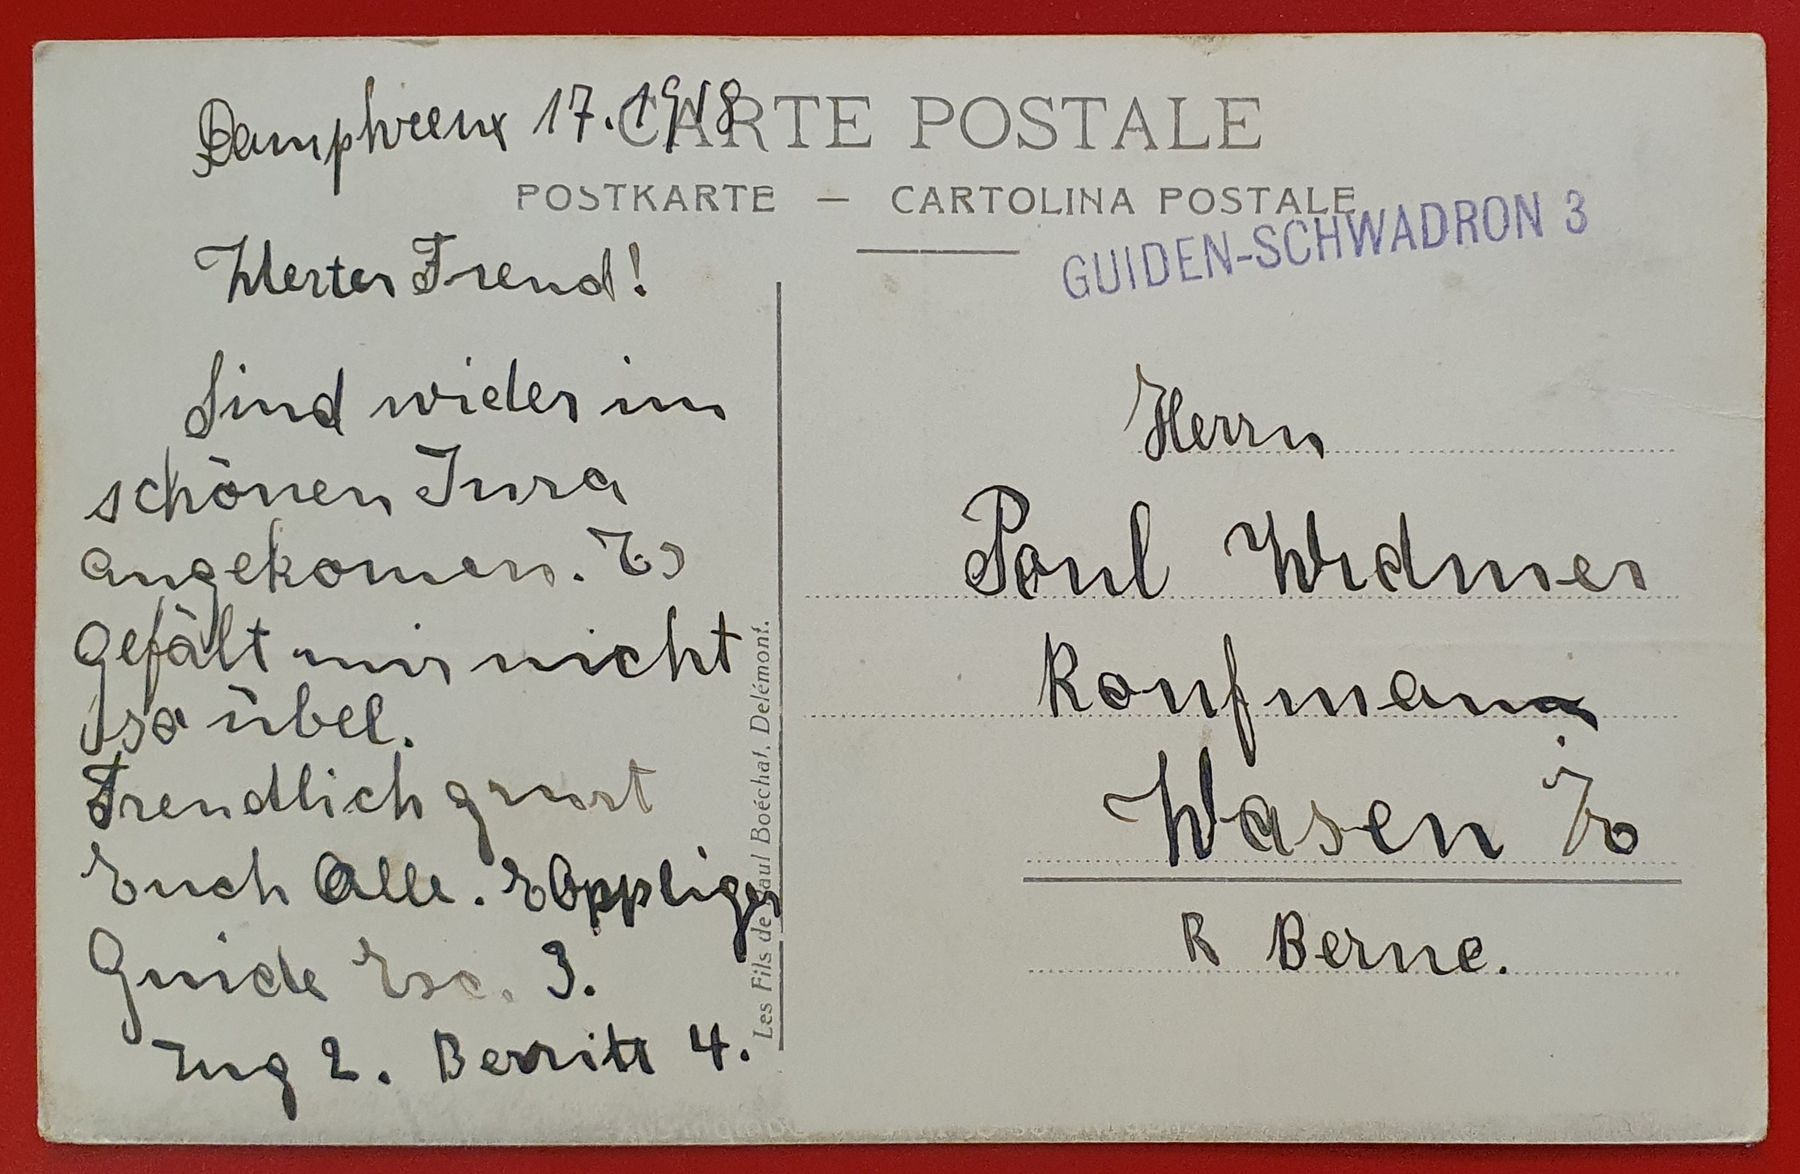 Damphreux 17. 1918
CARTE POSTALE
POSTKARTE — CARTOLINA POSTALE
GUIDEN-SCHWADRON 3
Werter Frend!
Sind wider im
schönen Jura
angekomen. Es
gefält mir nicht
so übel.
Frendlich grüst
Euch Alle. E Oppliger
Guide Esc. 3.
Zug 2. Berritt 4.
Les Fils de Paul Boéchat, Delémont.
Herrn
Paul Widmer
Kaufman
Wasen i/E
K Berne.